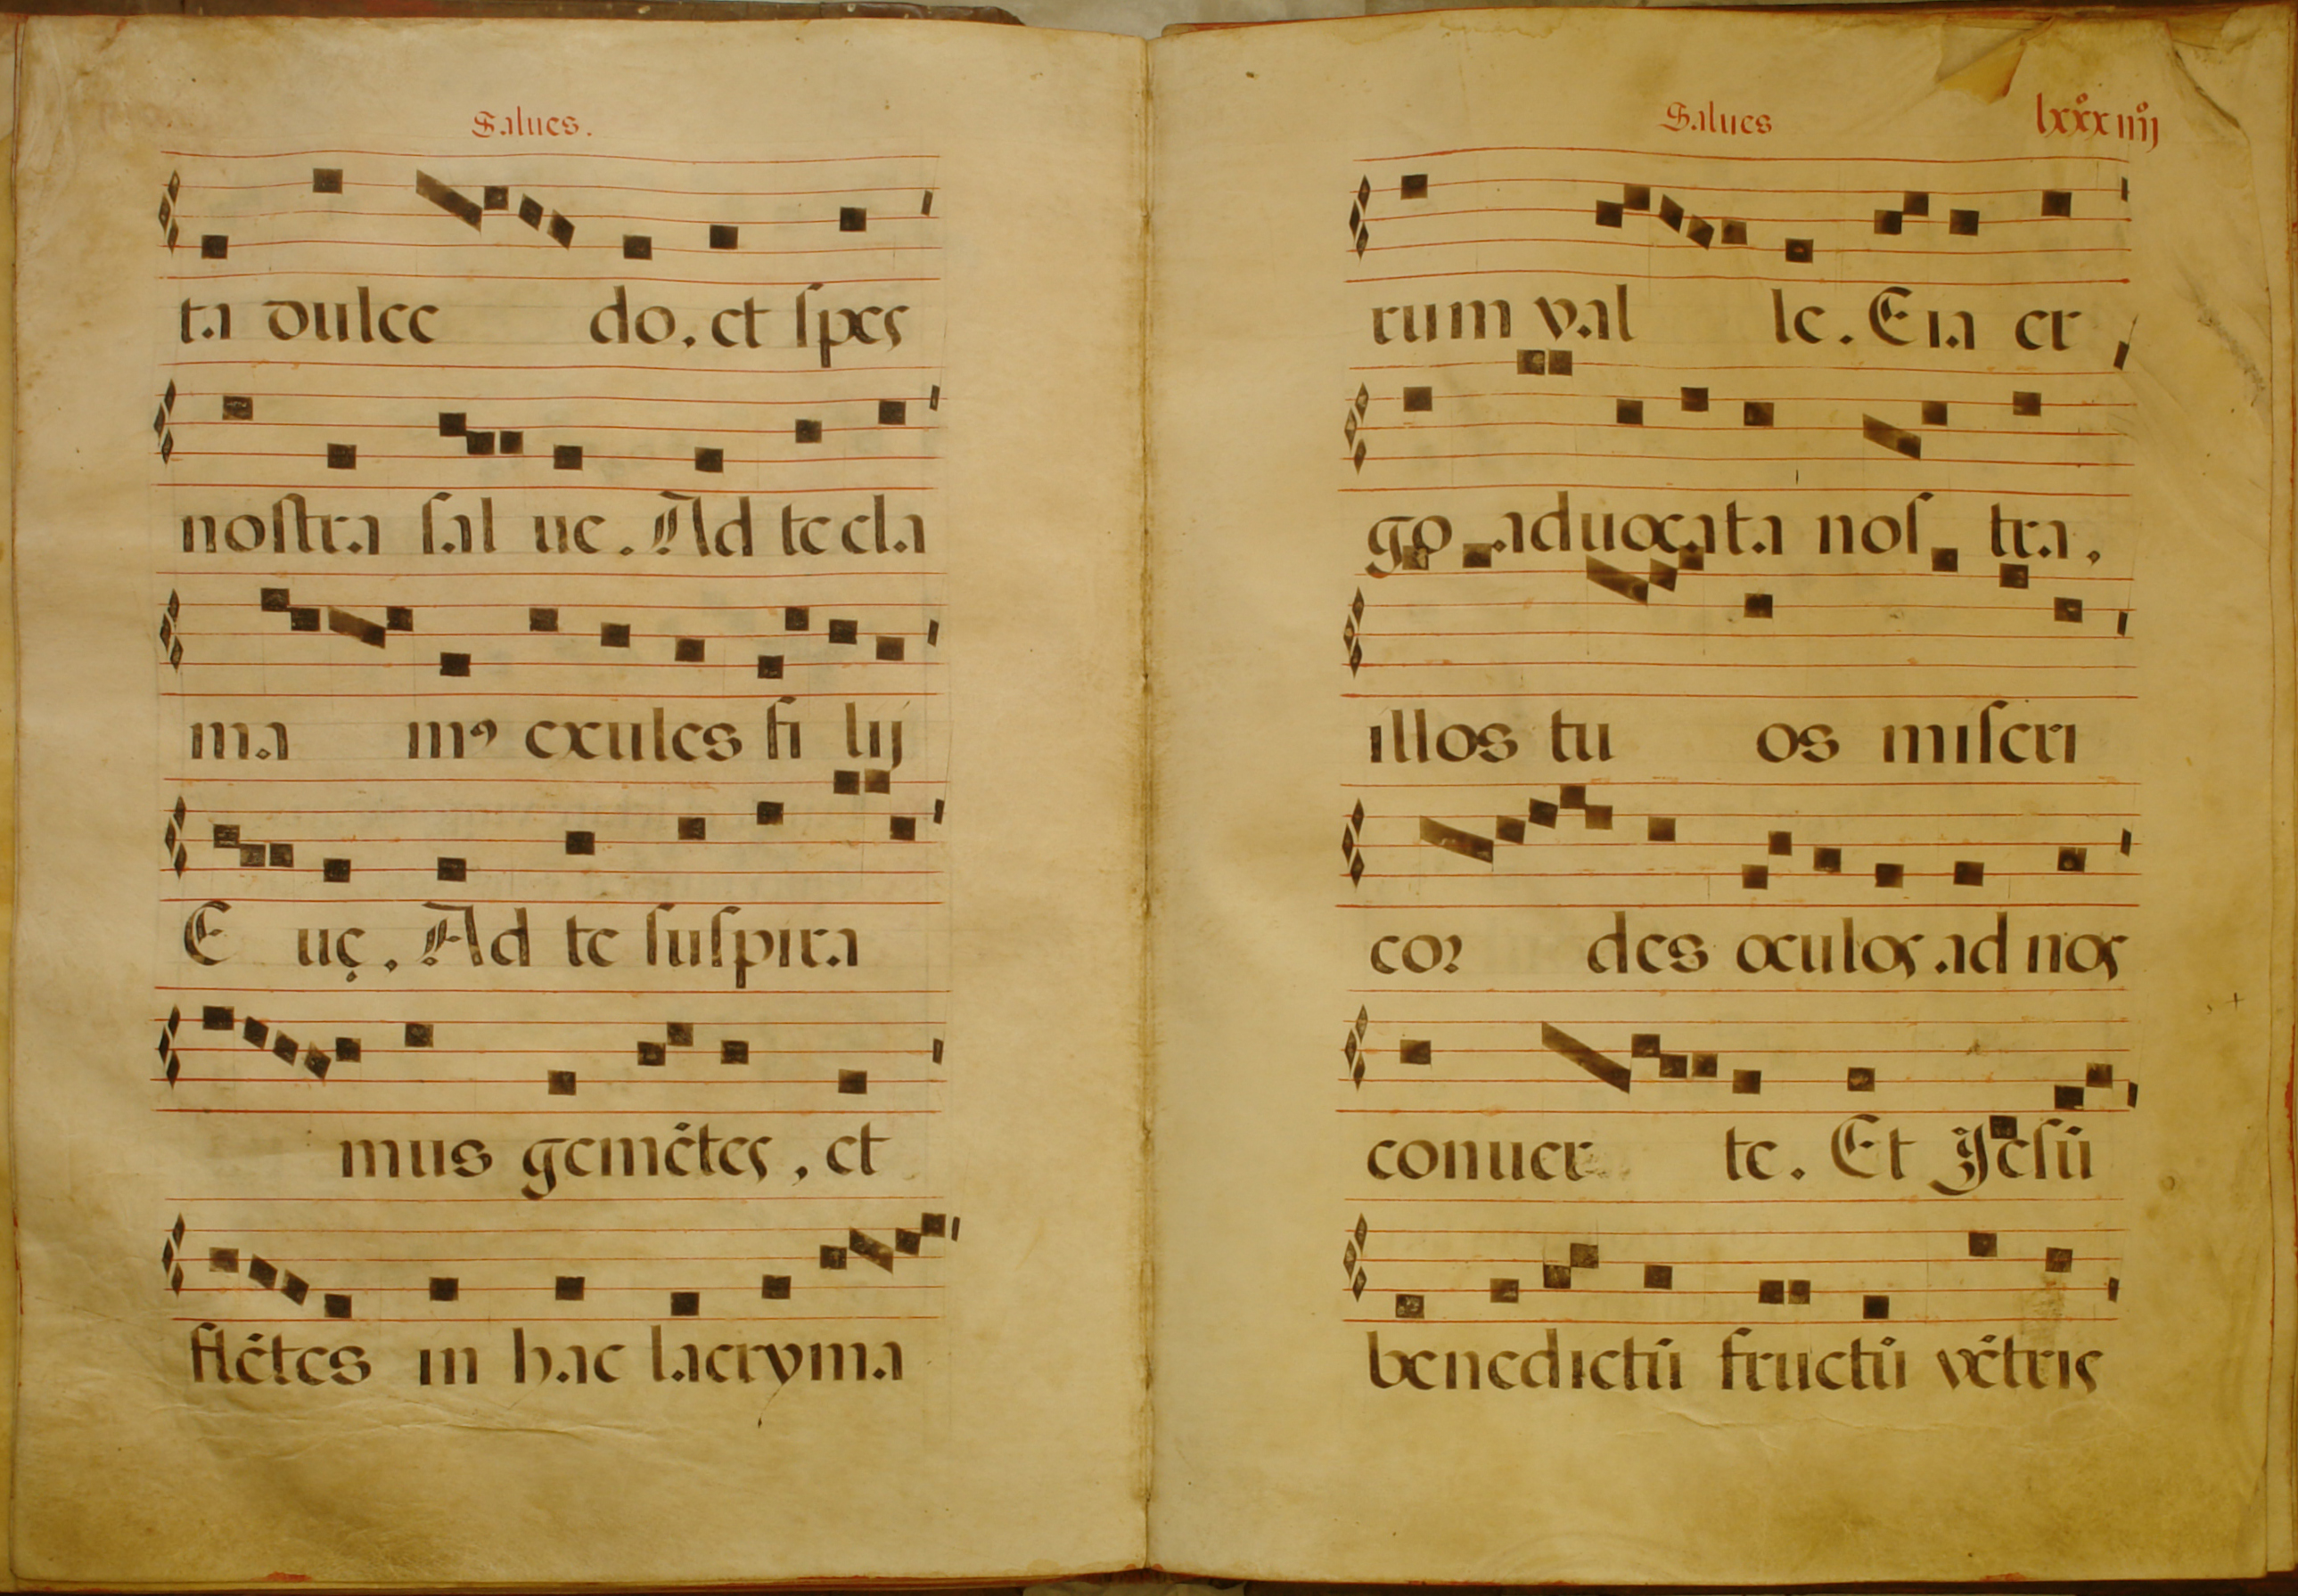 Salues.
ta dulce do. et spes
nostra sal ue. Ad te cla
ma mꝰ exules fi lij
E uę. Ad te suspira
mus gemẽtes, et
flẽtes in hac lacryma
Salues lxxxiiij
rum val le. Eia er
go aduocata nos tra.
illos tu os miseri
cor des oculos ad nos
conuer te. Et Jesũ
benedictũ fructũ vẽtris